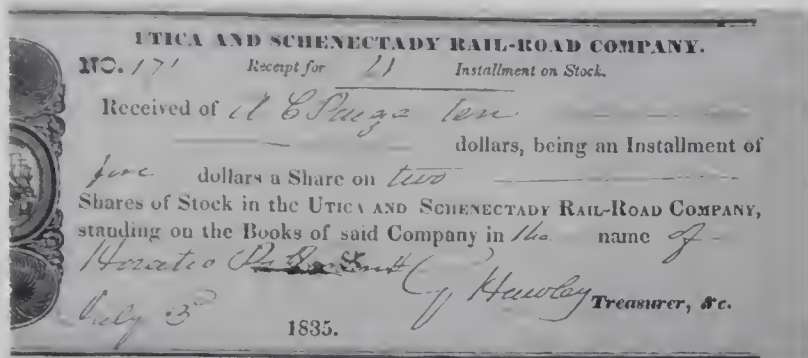 UTICA AND SCHENECTADY RAIL-ROAD COMPANY.
NO. 171 Receipt for 11 Installment on Stock.
Received of A C Paige ten
dollars, being an Installment of
five dollars a Share on two
Shares of Stock in the UTICA AND SCHENECTADY RAIL-ROAD COMPANY,
standing on the Books of said Company in the name of
Horatio
Hawley Treasurer, &c.
July 3rd 1835.